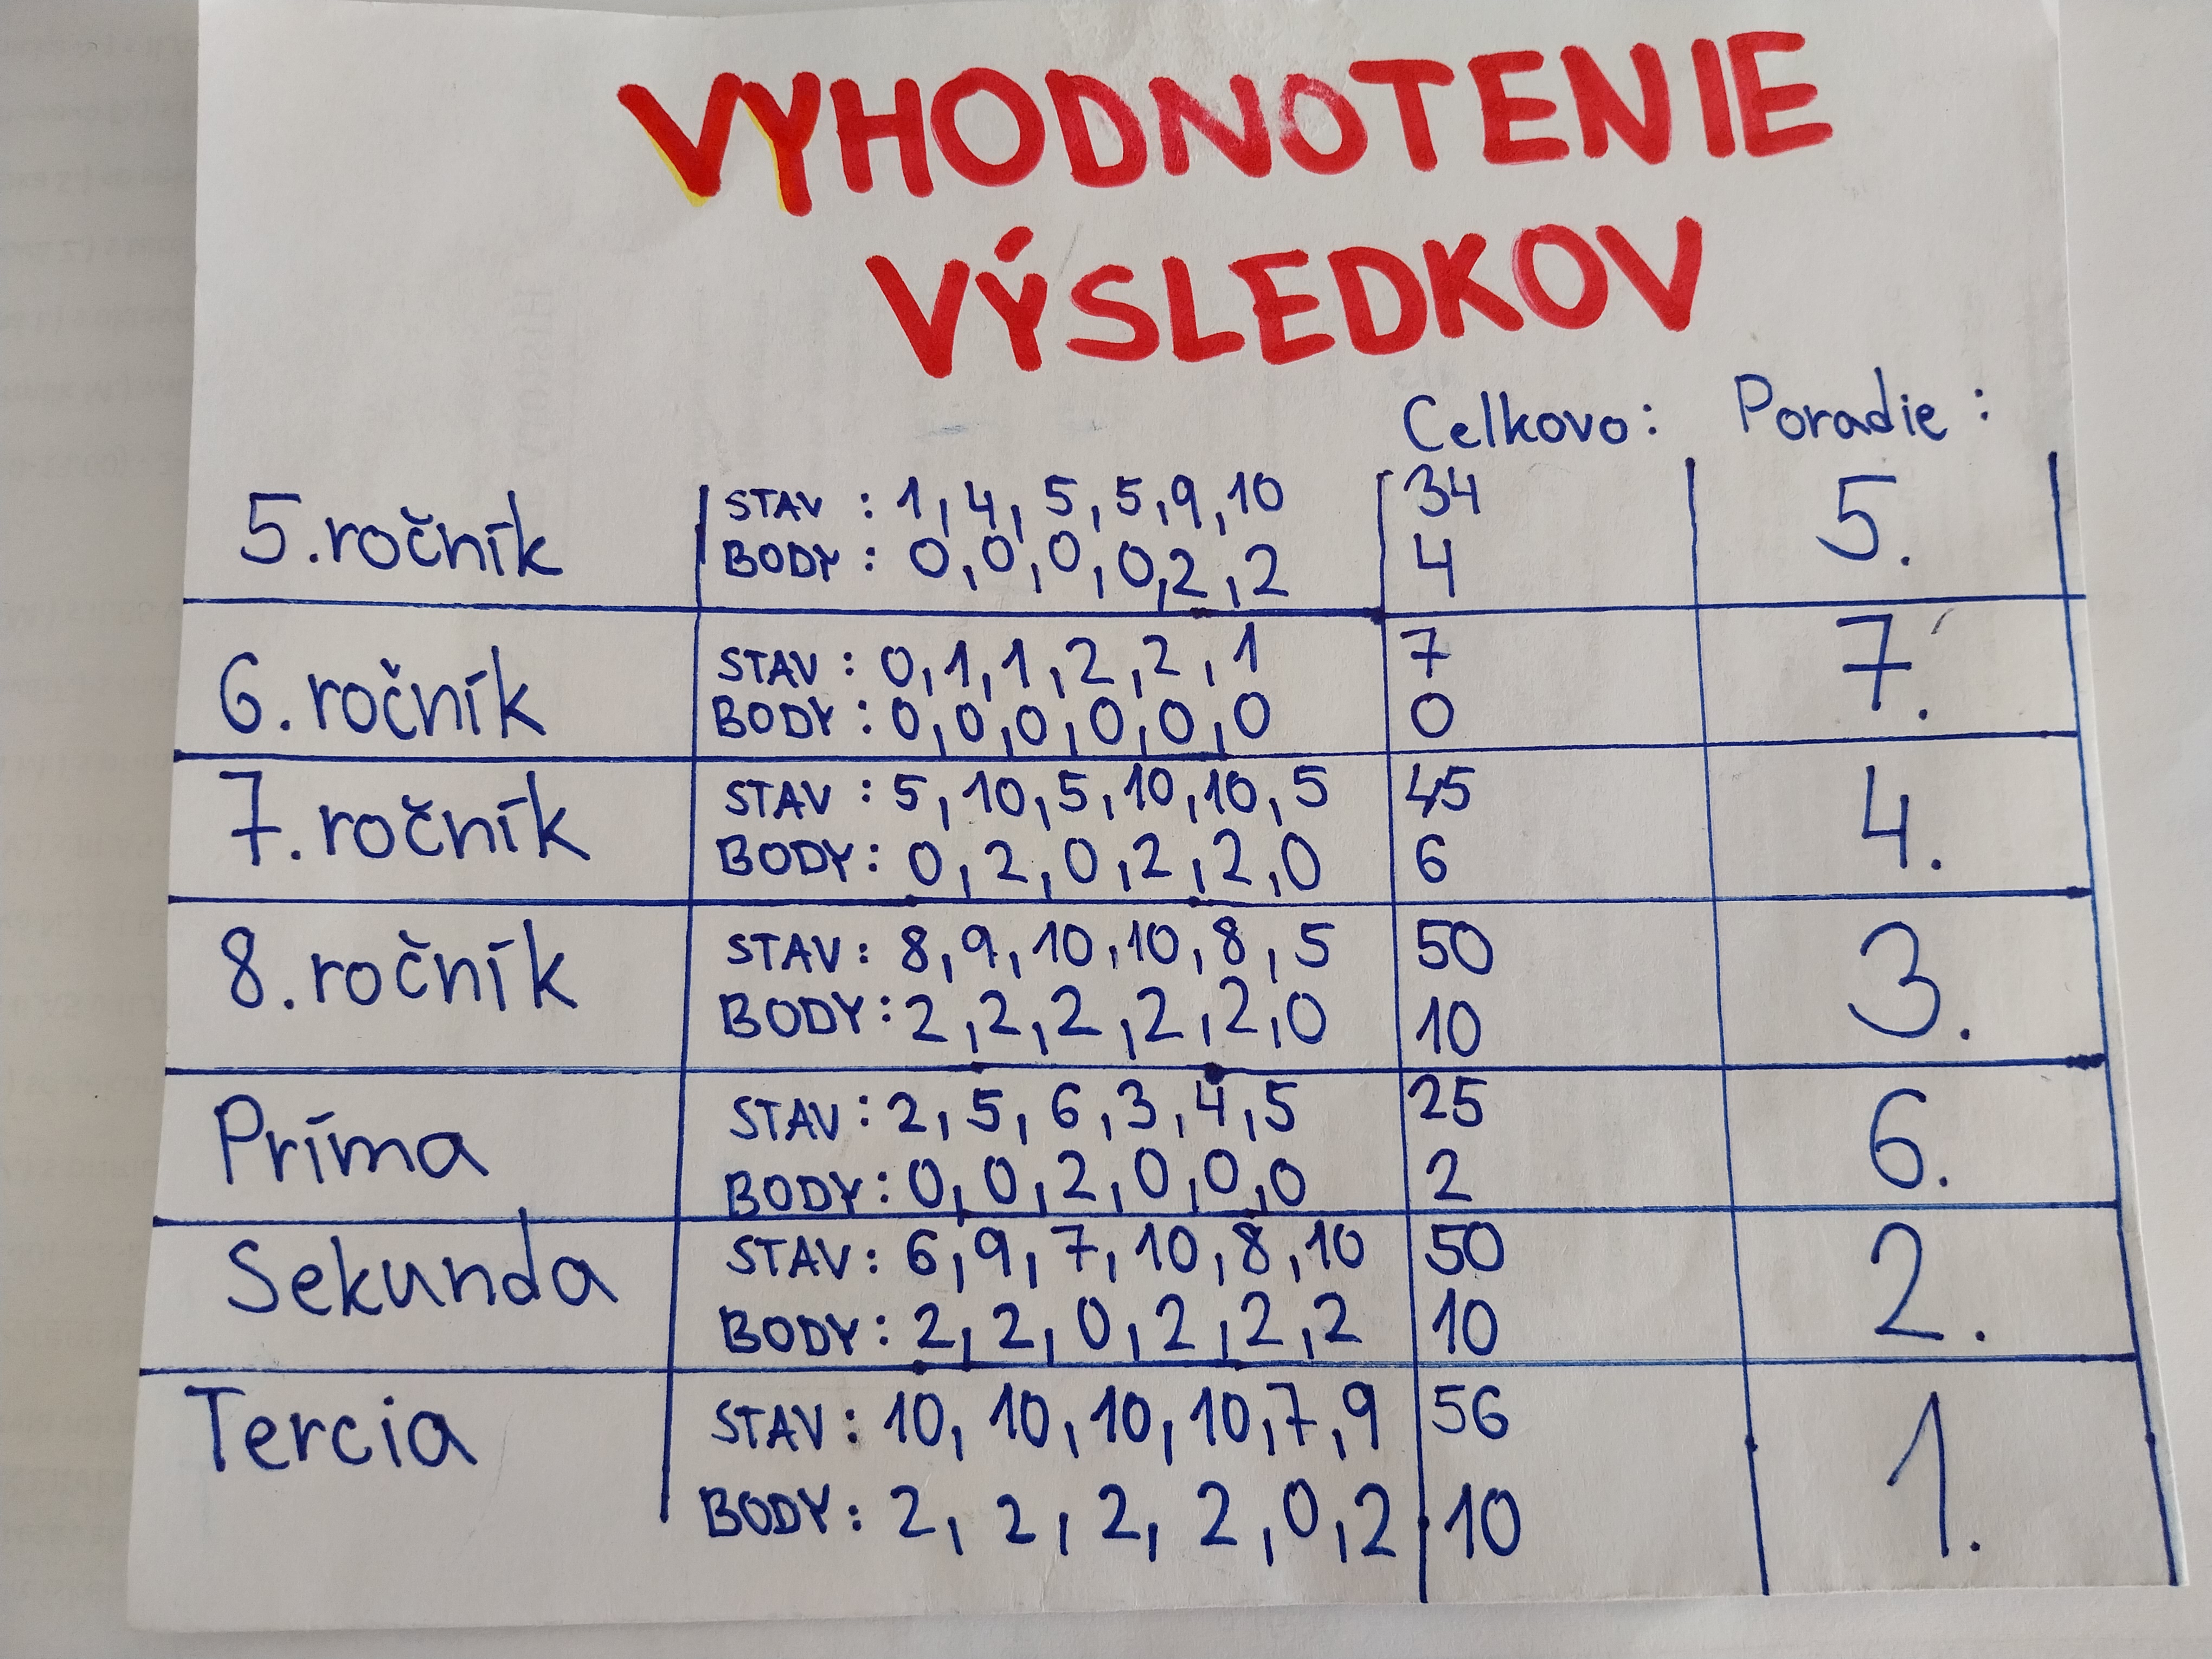 VYHODNOTENIE
VÝSLEDKOV
Celkovo: Poradie:
5.ročník STAV: 1, 4, 5, 5, 9, 10 34 5.
BODY: 0, 0, 0, 0, 2, 2 4
6.ročník STAV: 0, 1, 1, 2, 2, 1 7 7.
BODY: 0, 0, 0, 0, 0, 0 0
7.ročník STAV: 5, 10, 5, 10, 10, 5 45 4.
BODY: 0, 2, 0, 2, 2, 0 6
8.ročník STAV: 8, 9, 10, 10, 8, 5 50 3.
BODY: 2, 2, 2, 2, 2, 0 10
Príma STAV: 2, 5, 6, 3, 4, 5 25 6.
BODY: 0, 0, 2, 0, 0, 0 2
Sekunda STAV: 6, 9, 7, 10, 8, 10 50 2.
BODY: 2, 2, 0, 2, 2, 2 10
Tercia STAV: 10, 10, 10, 10, 7, 9 56 1.
BODY: 2, 2, 2, 2, 0, 2 10